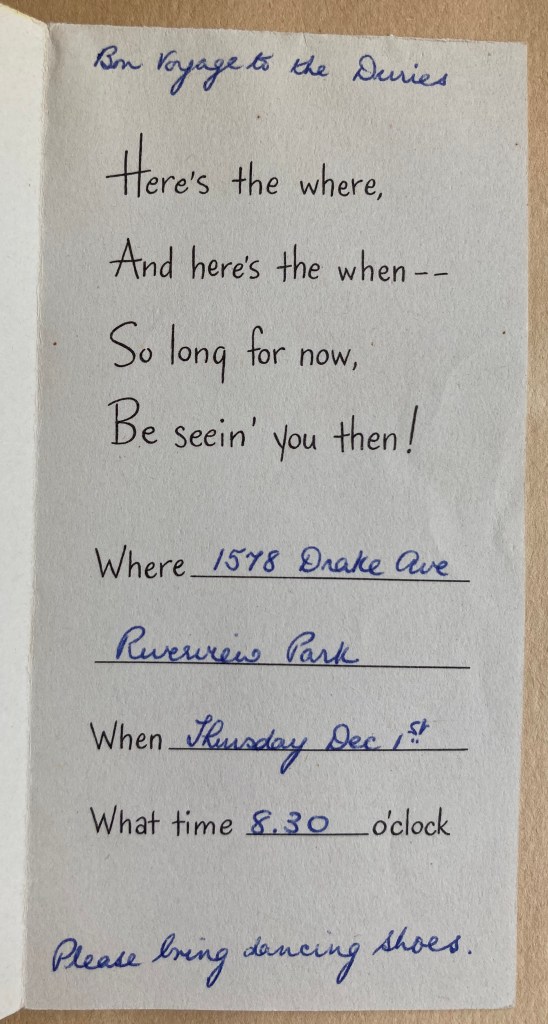 Bon Voyage to the Duries
Here's the where,
And here's the when--
So long for now,
Be seein' you then!
Where 1578 Drake Ave
Riverview Park
When Thursday Dec 1st
What time 8.30 o'clock
Please bring dancing shoes.